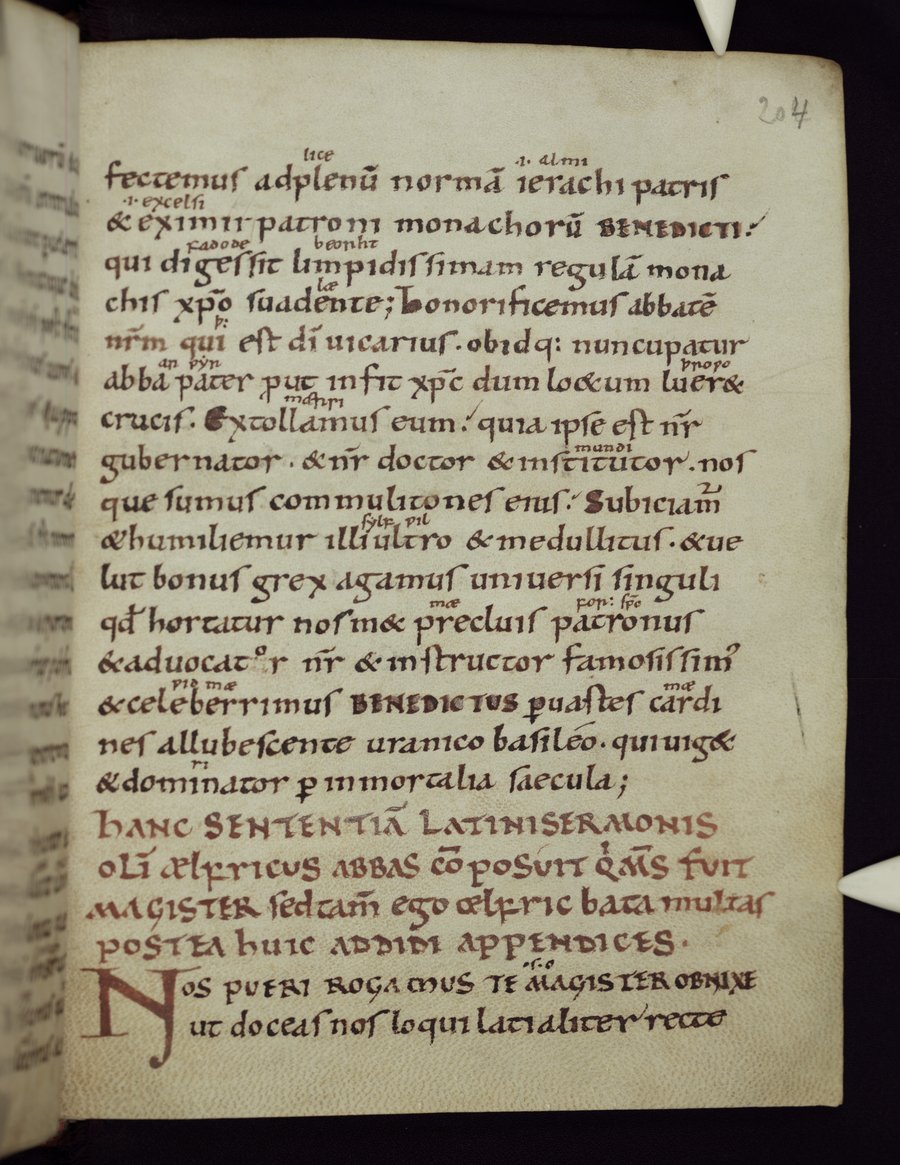 204
lice .i. almi
fectemus adplenū normā ierachi patris
.i. excelsi
& eximii patroni monachorū BENEDICTI.
fadode beorht
qui digessit limpidissimam regulā mona
læ
chis xp̄o suadente; honorificemus abbatē
nr̄m qui est dī uicarius. obidq: nuncupatur
an fyr propo
abba pater put infit xp̄c dum lo&um luer&
mærri
crucis. Extollamus eum. quia ipse est nr̄
mundi
gubernator. &nr̄ doctor &institutor. nos
que sumus commulitones eius. Subiciam̄
sylf pil
&humiliemur illi ultro &medullitus. &ue
lut bonus grex agamus uniuersi singuli
mæ for: spo
qd̄ hortatur nosm& precluis patronus
&aduocator nr̄ &instructor famosissim'
pid mæ mæ
&celeberrimus BENEDICTUS ꝑuastes cardi
nes allubescente uranico basileo. qui uig&
ri
&dominator ꝑ inmortalia saecula;
hANC SENTENTIĀ LATINISERMONIS
OLĪ ÆLFRICUS ABBAS CŌPOSUIT Q̇ M̄S FUIT
MAGISTER sed tam̄ ego ælfric bata multas
POSTEA huic ADDIDI APPENDICES.
.s. o
NOS PUERI ROGAMUS TE MAGISTER OBNIXE
ut doceas nos loqui latialiter recte